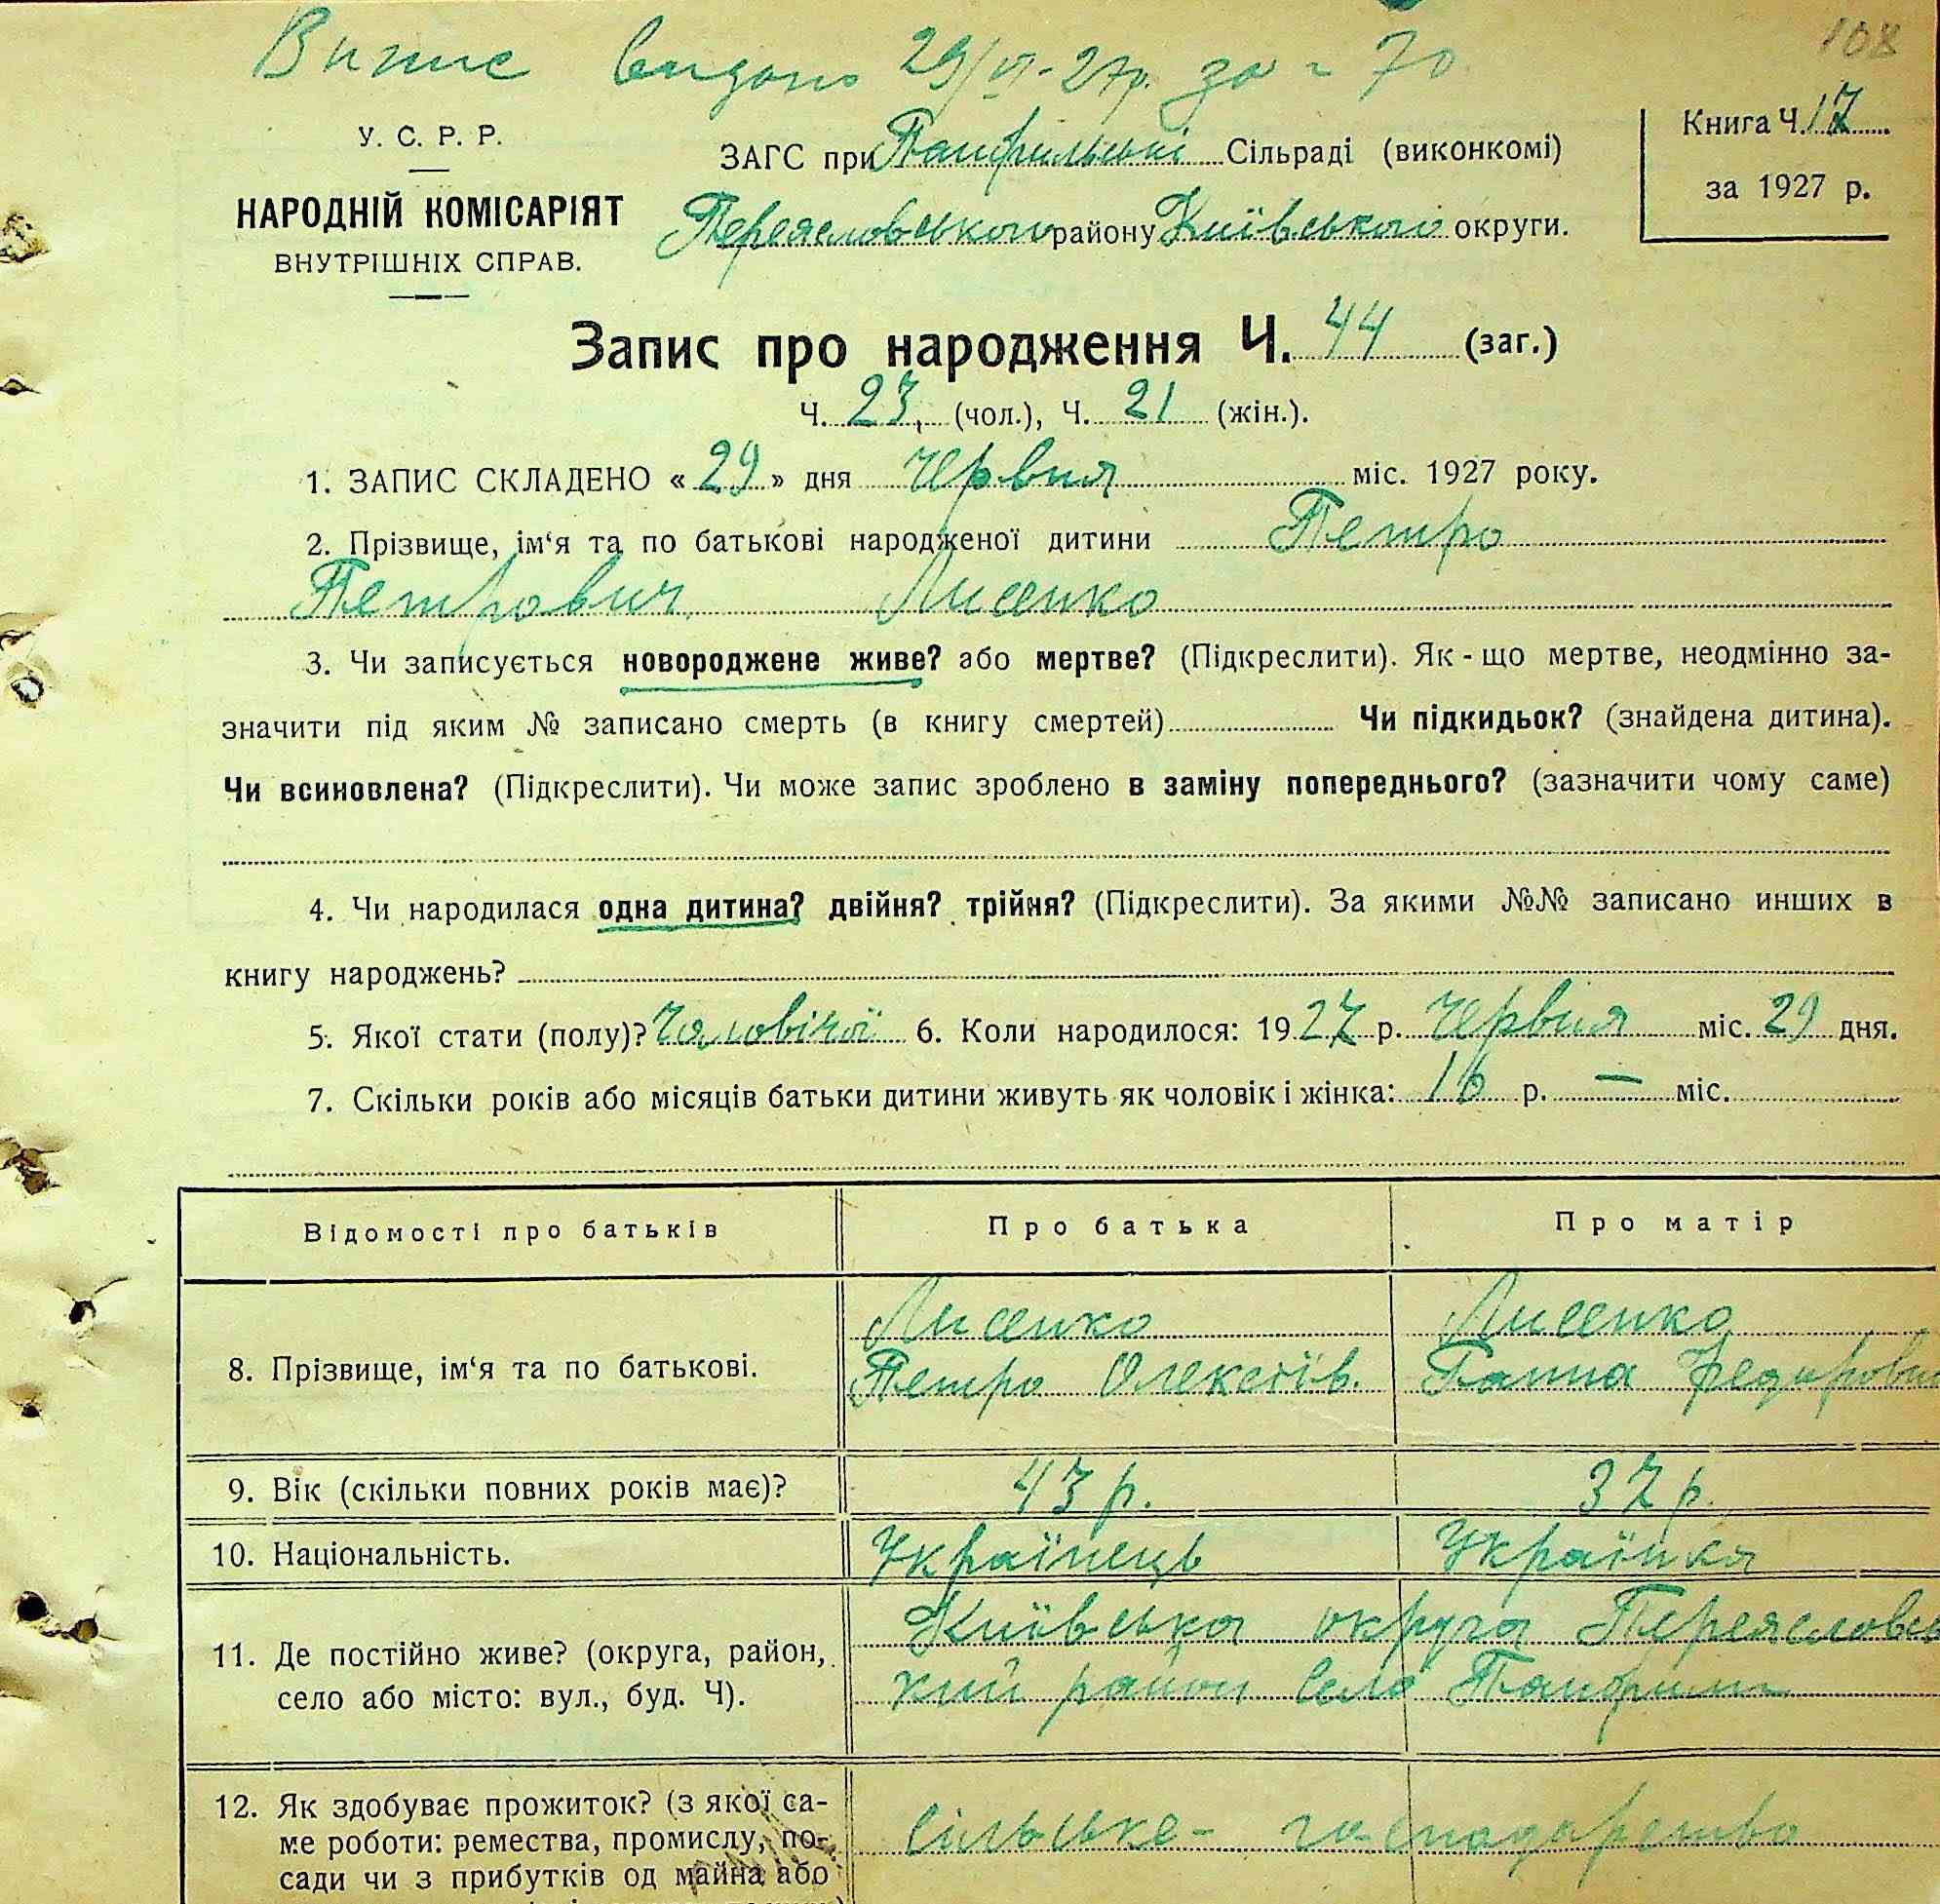 108
Випис видано 29/VI-27р. за № 70
У. С. Р. Р.
НАРОДНІЙ КОМІСАРІЯТ
ВНУТРІШНІХ СПРАВ.
ЗАГС при Панфильські Сільраді (виконкомі)
Переясловського району Київського округи.
Книга Ч. 17
за 1927 р.
Запис про народження Ч. 44 (заг.)
Ч. 23, (чол.), Ч. 21 (жін.).
1. ЗАПИС СКЛАДЕНО « 29 » дня Червня міс. 1927 року.
2. Прізвище, ім‘я та по батькові народженої дитини Петро
Петрович Лисенко
3. Чи записується новороджене живе? або мертве? (Підкреслити). Як-що мертве, неодмінно за-
значити під яким № записано смерть (в книгу смертей) Чи підкидьок? (знайдена дитина).
Чи всиновлена? (Підкреслити). Чи може запис зроблено в заміну попереднього? (зазначити чому саме)
4. Чи народилася одна дитина? двійня? трійня? (Підкреслити). За якими №№ записано инших в
книгу народжень?
5. Якої стати (полу)? Чоловічої 6. Коли народилося: 1927 р. Червня міс. 29 дня.
7. Скільки років або місяців батьки дитини живуть як чоловік і жінка: 16 р. — міс.
Відомості про батьків Про батька Про матір
Лисенко Лисенко
8. Прізвище, ім‘я та по батькові. Петро Олексіїв. Ганна Федоровн
9. Вік (скільки повних років має)? 43 р. 37 р.
10. Національність. Українець Українка
Київська округа Переясловсь
11. Де постійно живе? (округа, район,
кий район село Панфили
село або місто: вул., буд. Ч).
12. Як здобуває прожиток? (з якої са-
сільське- господарство
ме роботи: ремества, промислу, по-
сади чи з прибутків од майна або